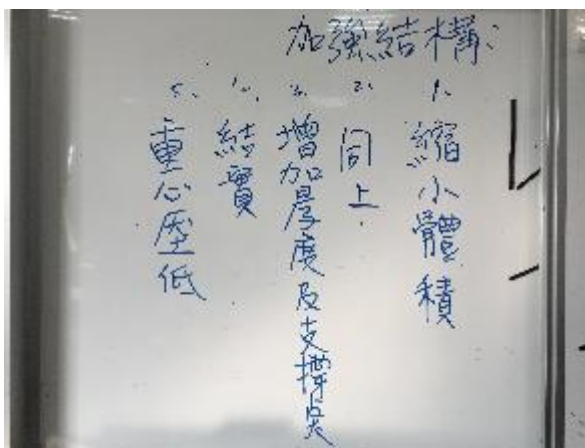 加強結構:
1. 縮小體積
2. 同上
3. 增加厚度及支撐点
4. 結實
5. 重心壓低